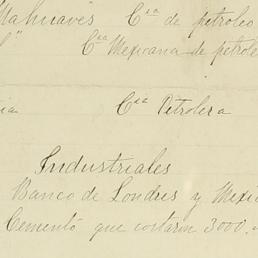 Mahuaves Cia de petroleo
Cia Mexicana de petrole
Cia Petrolera
Industriales
Banco de Londres y Mexi
Cementó que costarin 3000